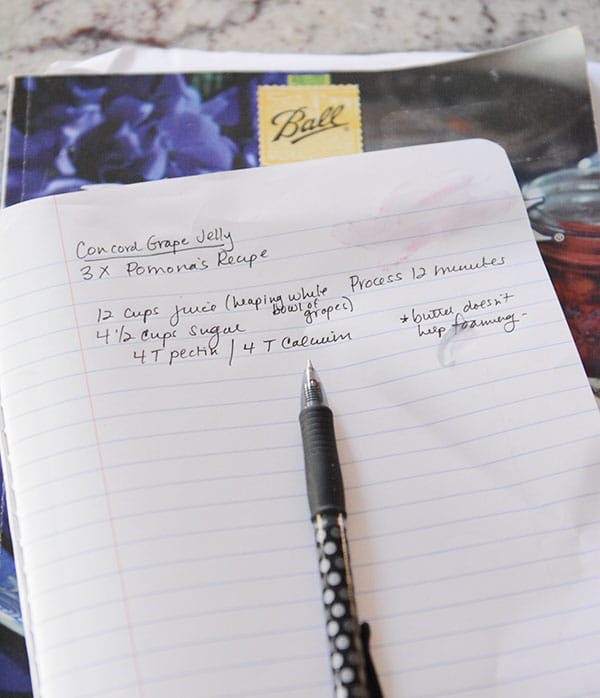 Ball
Concord Grape Jelly
3 X Pomona's Recipe
Process 12 minutes
12 cups juice (heaping white bowl of grapes)
4 1/2 cups sugar
4 T pectin / 4 T Calcium
* butter doesn't
help foaming -